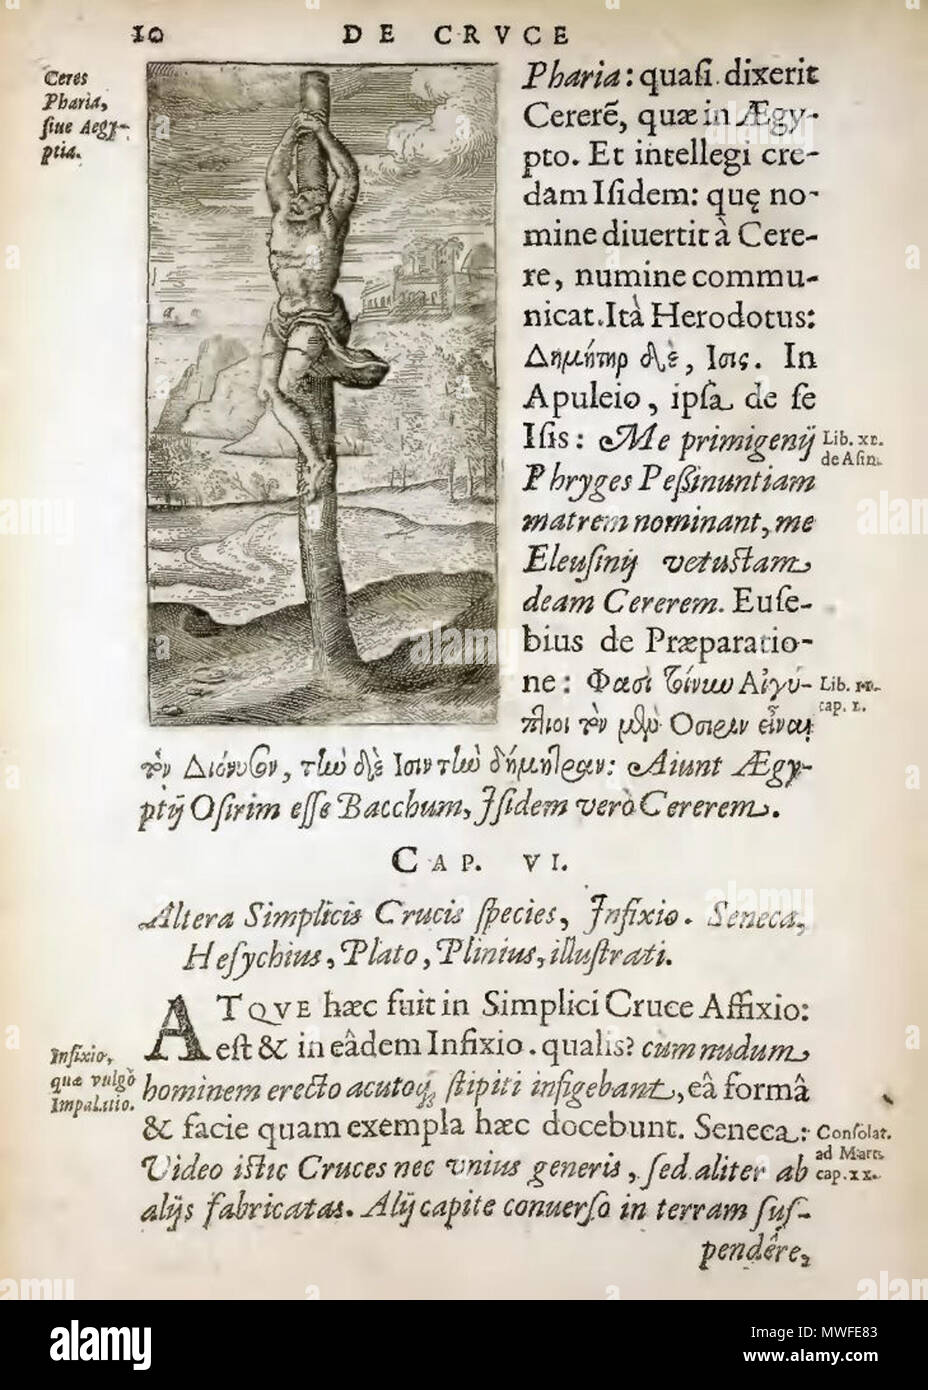 10 DE CRVCE
Ceres
Pharia,
ſiue Aegy-
ptia.
Pharia: quaſi dixerit
Cererẽ, quæ in Ægy-
pto. Et intellegi cre-
dam Iſidem: quę no-
mine diuertit à Cere-
re, numine commu-
nicat. Ità Herodotus:
Δημήτηρ δὲ, Ισις. In
Apuleio, ipſa de ſe
Iſis: Me primigenij
Lib. XI.
de Aſin.
Phryges Peſsinuntiam
matrem nominant, me
Eleuſinij vetuſtam
deam Cererem. Euſe-
bius de Præparatio-
ne: Φασὶ Αἰγύ-
Lib. II.
cap. I.
πτιοι τὸν μὲν Οσιριν εἶναι
τὸν Διόνυσον, τὴν δὲ Ισιν τὴν δήμητραν: Aiunt Ægy-
ptij Oſirim eſſe Bacchum, Iſidem verò Cererem.
CAP. VI.
Altera Simplicis Crucis ſpecies, Infixio. Seneca,
Heſychius, Plato, Plinius, illuſtrati.
ATQVE hæc fuit in Simplici Cruce Affixio:
eſt & in eâdem Infixio. qualis? cum nudum
Infixio,
quæ vulgò
Impalatio.
hominem erecto acutoq; ſtipiti infigebant, eâ formâ
& facie quam exempla hæc docebunt. Seneca:
Conſolat.
ad Marc.
cap. XX.
Video iſtic Cruces nec vnius generis, ſed aliter ab
alijs fabricatas. Alij capite conuerſo in terram ſuſ-
pendêre,
alamy
Image ID: MWFE83
www.alamy.com